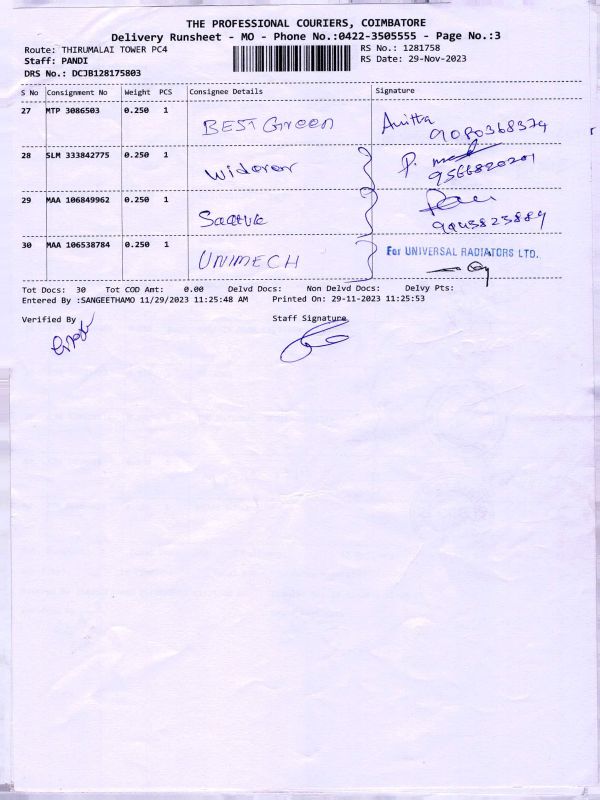 THE PROFESSIONAL COURIERS, COIMBATORE
Delivery Runsheet - MO - Phone No.:0422-3505555 - Page No.:3
Route: THIRUMALAI TOWER PC4
RS No.: 1281758
Staff: PANDI
RS Date: 29-Nov-2023
DRS No.: DCJB128175803
S No Consignment No Weight PCS Consignee Details Signature
27 MTP 3086503 0.250 1
BEST Green
Anitha
9080368374
28 SLM 333842775 0.250 1
P.
9566820201
29 MAA 106849962 0.250 1
9443823889
30 MAA 106538784 0.250 1
UNIMECH
For UNIVERSAL RADIATORS LTD.
Tot Docs: 30 Tot COD Amt: 0.00 Delvd Docs: Non Delvd Docs: Delvy Pts:
Entered By :SANGEETHAMO 11/29/2023 11:25:48 AM Printed On: 29-11-2023 11:25:53
Verified By
Staff Signature